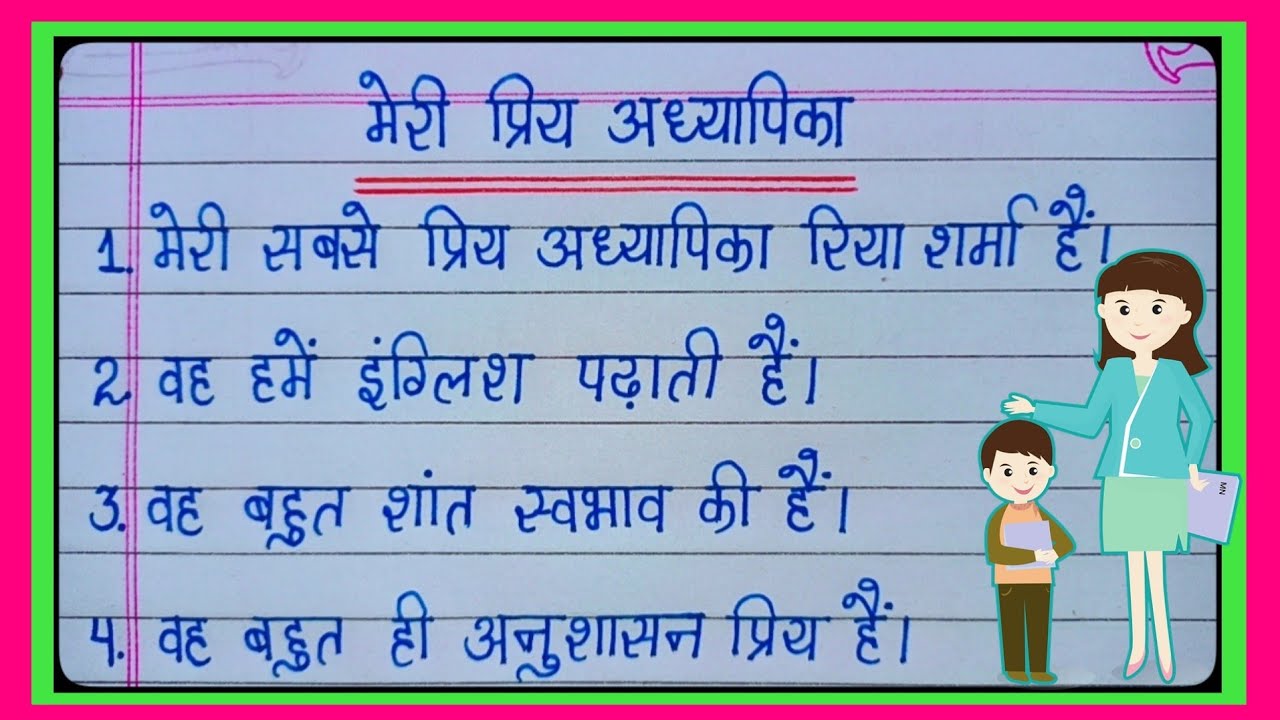 मेरी प्रिय अध्यापिका
1. मेरी सबसे प्रिय अध्यापिका रिया शर्मा हैं।
2. वह हमें इंग्लिश पढ़ाती हैं।
3. वह बहुत शांत स्वभाव की हैं।
4. वह बहुत ही अनुशासन प्रिय हैं।
MN